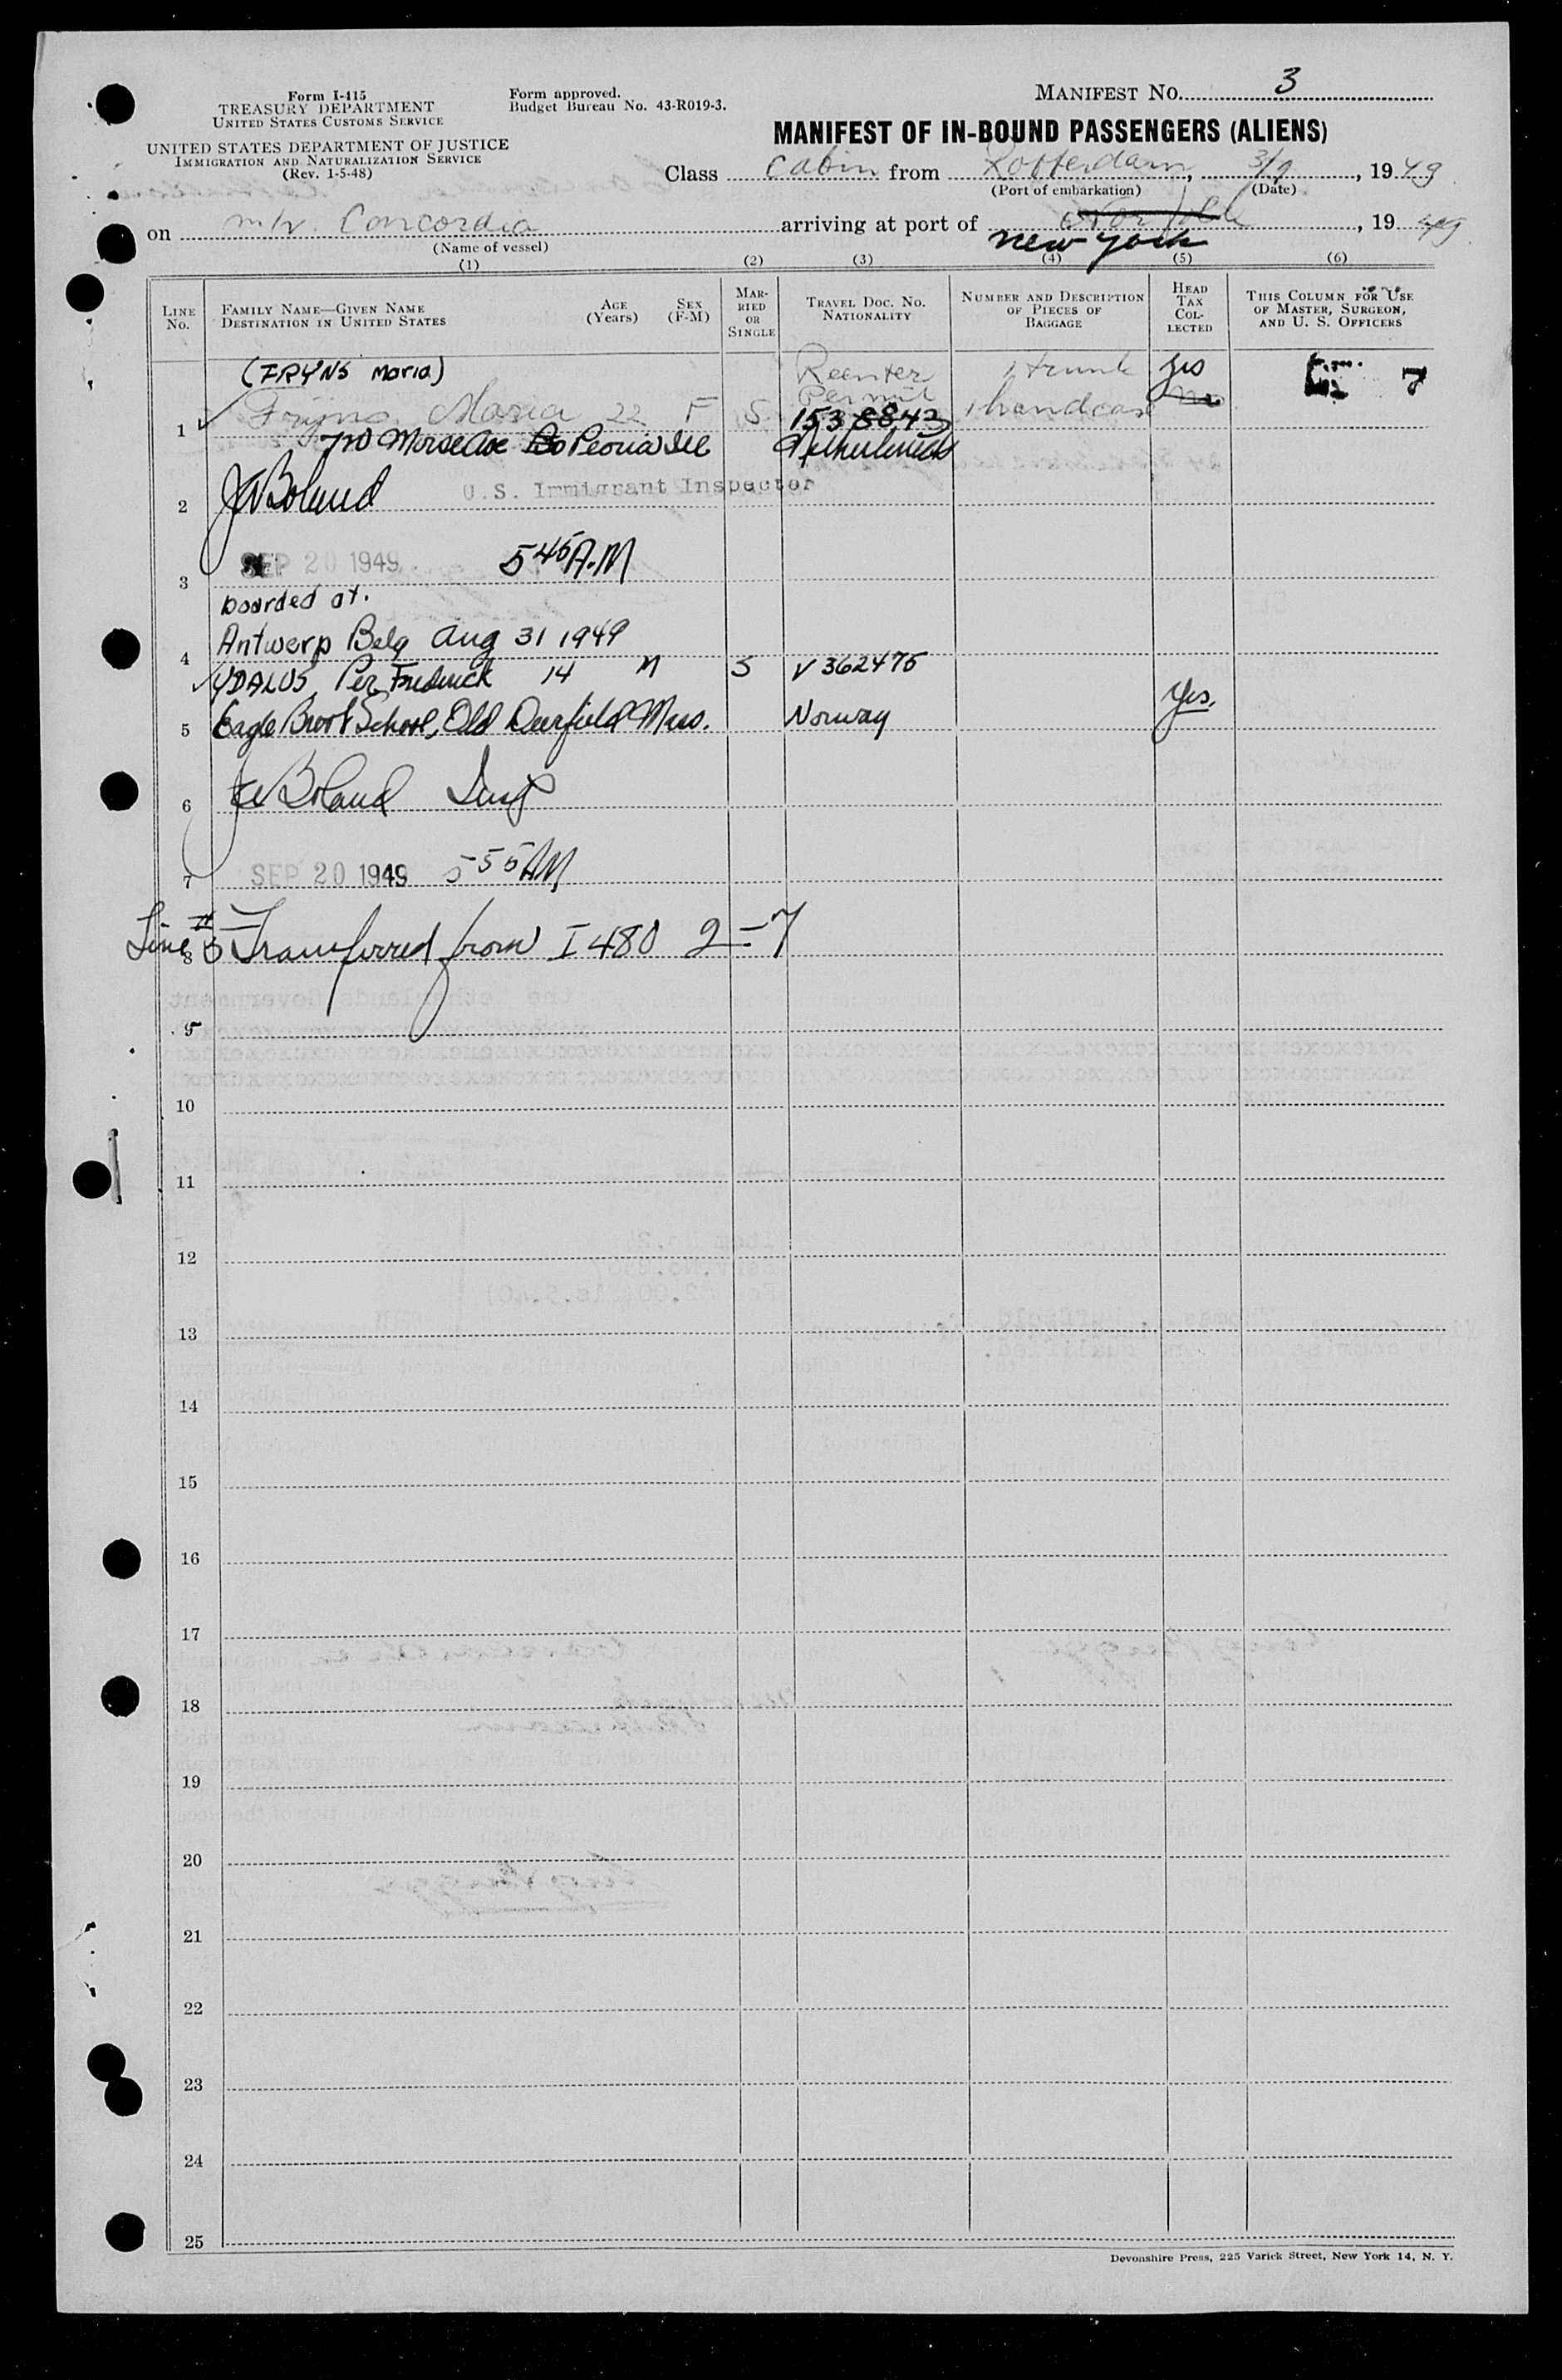 Form I-415
TREASURY DEPARTMENT
UNITED STATES CUSTOMS SERVICE
UNITED STATES DEPARTMENT OF JUSTICE
IMMIGRATION AND NATURALIZATION SERVICE
(Rev. 1-5-48)
Form approved.
Budget Bureau No. 43-R019-3.
MANIFEST NO. 3
MANIFEST OF IN-BOUND PASSENGERS (ALIENS)
Class Cabin from Rotterdam, 3/9, 1949
(Port of embarkation) (Date)
on m/v. Concordia arriving at port of Norfolk, 1949
New York
(Name of vessel)
(1) (2) (3) (4) (5) (6)
LINE No. FAMILY NAME—GIVEN NAME DESTINATION IN UNITED STATES AGE (Years) SEX (F-M) MARRIED OR SINGLE TRAVEL DOC. NO. NATIONALITY NUMBER AND DESCRIPTION OF PIECES OF BAGGAGE HEAD TAX COLLECTED THIS COLUMN FOR USE OF MASTER, SURGEON, AND U. S. OFFICERS
(FRYNS Maria) Reenter 1 trunk yes 7
Permit
1 Fryns Maria 22 F S 1538843 1 handcase
710 Morse Ave Peoria Ill Netherlands
2 JW Boland U.S. Immigrant Inspector
3 SEP 20 1949 5 45 A.M
boarded at.
4 Antwerp Belg Aug 31 1949
YDALUS, Per Fredrick 14 M S V 362475
5 Eagle Brook School, Old Deerfield Mass. Norway Yes.
6 JW Boland Insp
7 SEP 20 1949 5 55 AM
8 Line # 5 Transferred from I 480 2-7
9
10
11
12
13
14
15
16
17
18
19
20
21
22
23
24
25
Devonshire Press, 225 Varick Street, New York 14, N. Y.